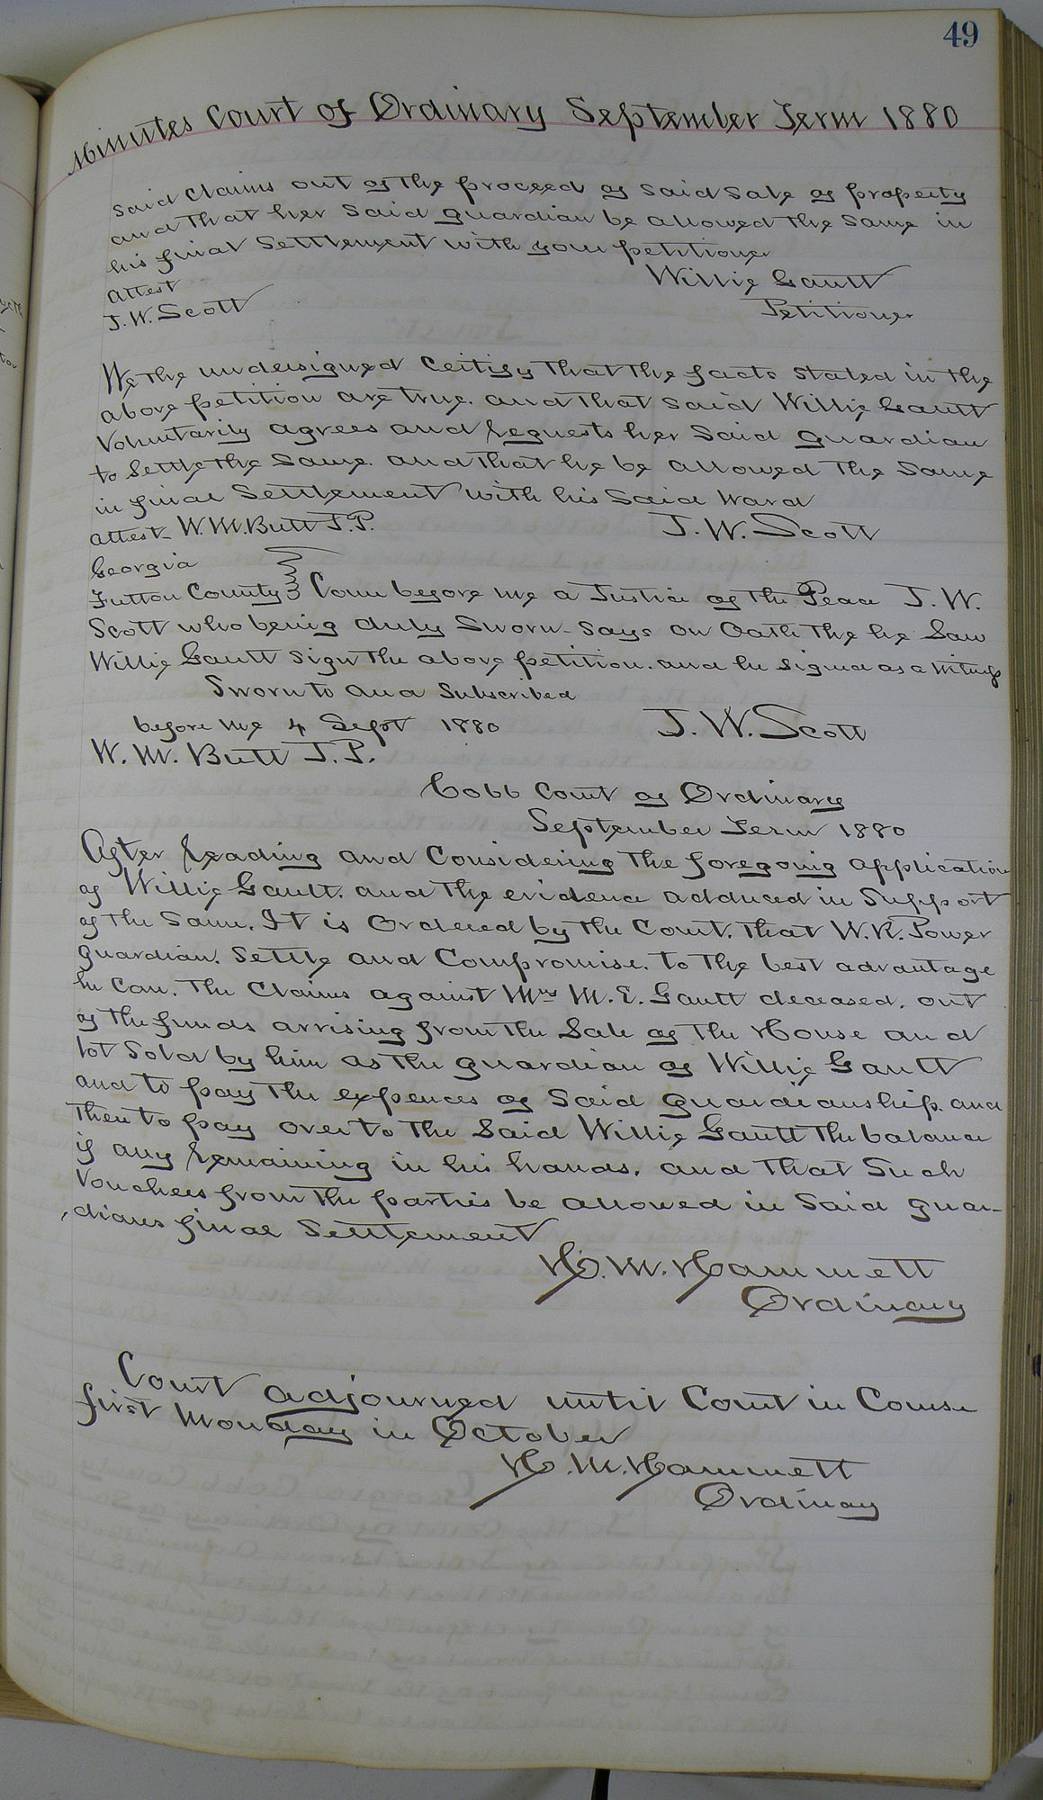 49
Minutes Court of Ordinary September Term 1880
said Claims out of the proceed of said sale of property
and that her said guardian be allowed the same in
his final settlement with your petitioner
Willie Gault
Petitioner
Attest
J. W. Scott
We the undersigned Certify that the facts stated in the
above petition are true. and that said Willie Gault
Voluntarily agrees and requests her said guardian
to settle the same. and that he be allowed the same
in final settlement with his said ward
attest W. M. Butt J. P.
J. W. Scott
Georgia
Fulton County Came before me a Justice of the Peace J. W.
Scott who being duly sworn says on Oath the he saw
Willie Gault sign the above petition. and he signed as a witness
Sworn to and subscribed
before me 4 Sept 1880
J. W. Scott
W. M. Butt J. P.
Cobb Court of Ordinary
September Term 1880
After reading and Considering the foregoing application
of Willie Gault. and the evidence adduced in support
of the same. It is Ordered by the Court. that W. R. Power
guardian. settle and Compromise. to the best advantage
he can. the Claims against Mrs M. E. Gault deceased. out
of the funds arrising from the sale of the House and
lot sold by him as the guardian of Willie Gault
and to pay the expences of said guardianship. and
then to pay over to the said Willie Gault the balance
if any remaining in his hands. and that such
Vouchers from the parties be allowed in said guar-
dians final settlement
H. M. Hammett
Ordinary
Court adjourned until Court in Course
first Monday in October
H. M. Hammett
Ordinary